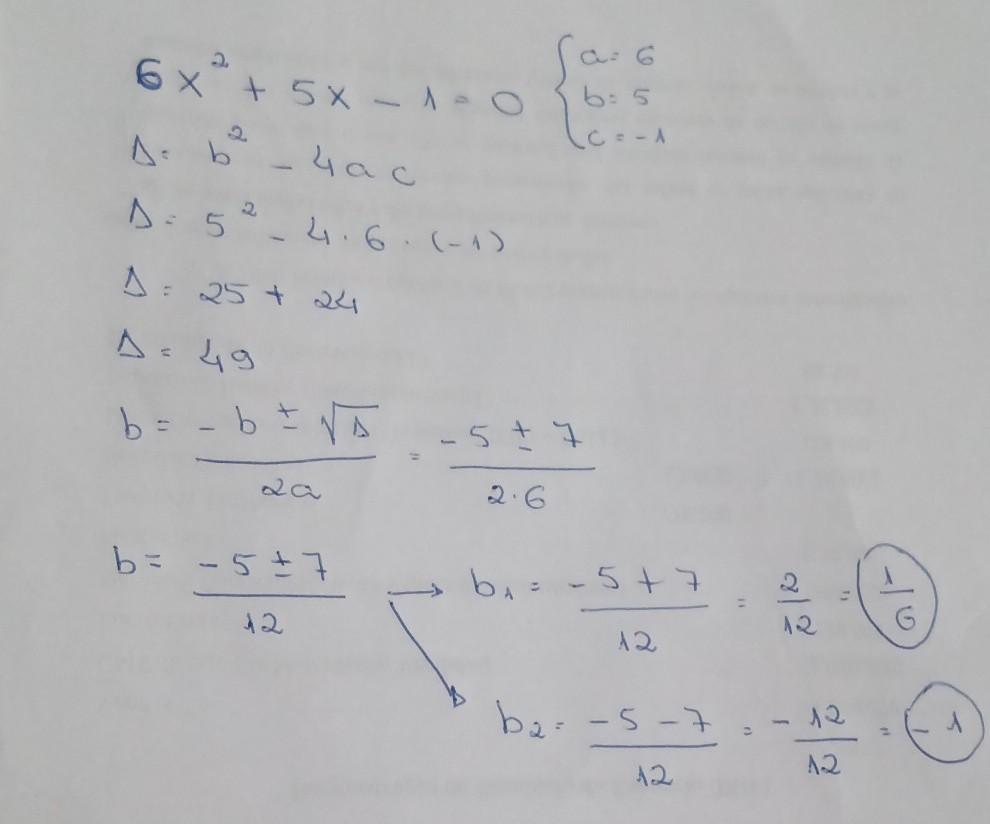 6x² + 5x - 1 = 0 { a = 6
b = 5
c = -1
Δ = b² - 4ac
Δ = 5² - 4 · 6 · (-1)
Δ = 25 + 24
Δ = 49
b = (-b ± √Δ)/2a = (-5 ± 7)/2·6
b = (-5 ± 7)/12 → b₁ = (-5 + 7)/12 = 2/12 = 1/6
b₂ = (-5 - 7)/12 = -12/12 = -1